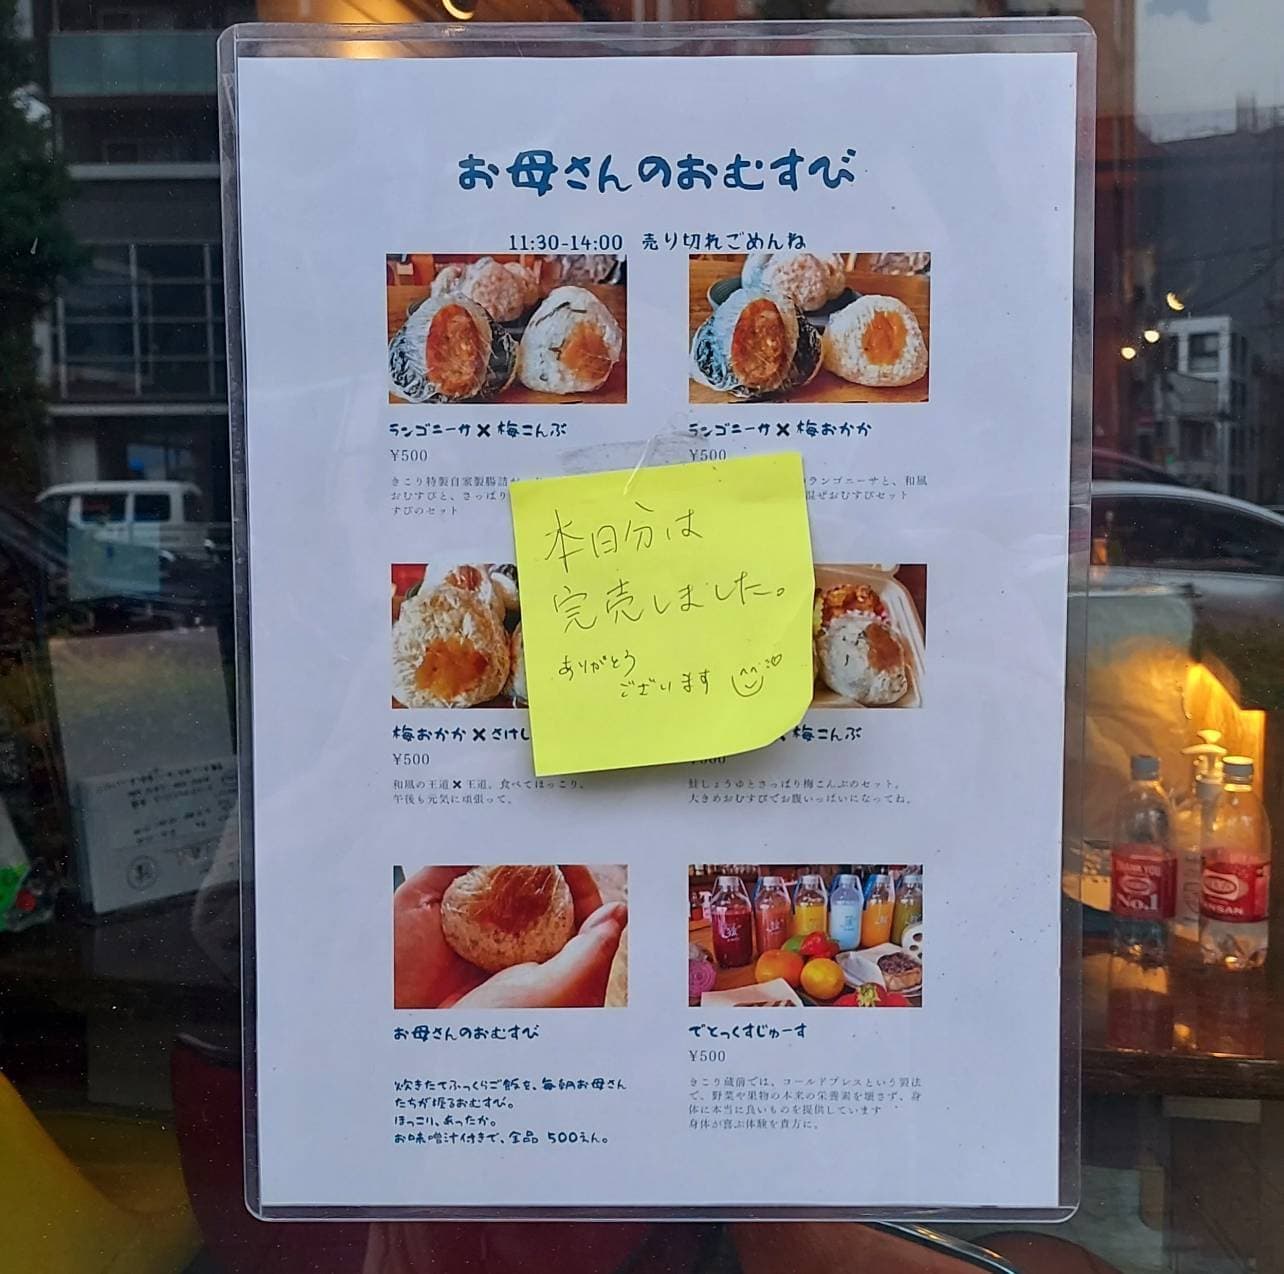 お母さんのおむすび
11:30-14:00 売り切れごめんね
ランゴニーサ✖梅こんぶ
¥500
きこり特製自家製腸詰
おむすびと、さっぱり
すびのセット
ランゴニーサ✖梅おかか
¥500
ランゴニーサと、和風
混ぜおむすびセット
本日分は
完売しました。
ありがとう
ございます
梅おかか✖さけし
¥500
和風の王道✖王道。食べてほっこり。
午後も元気に頑張って。
梅こんぶ
鮭しょうゆとさっぱり梅こんぶのセット。
大きめおむすびでお腹いっぱいになってね。
お母さんのおむすび
炊きたてふっくらご飯を、毎朝お母さん
たちが握るおむすび。
ほっこり、あったか。
お味噌汁付きで、全品 500えん。
でとっくすじゅーす
¥500
きこり蔵前では、コールドプレスという製法
で、野菜や果物の本来の栄養素を壊さず、身
体に本当に良いものを提供しています
身体が喜ぶ体験を貴方に。
No.1